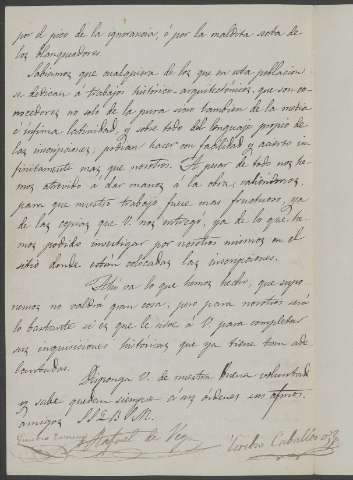 por el pico de la ignorancia, ó por la maldita nota de
los blanqueadores.
Sabíamos que cualquiera de los que en esta poblacion
se dedican á trabajos histórico-arquitectónicos, que son co-
nocedores no solo de la pura sino tambien de la media
é ínfima latinidad, y sobre todo del lenguaje propio de
las inscripciones, podian hacer con facilidad y acierto in-
finitamente mas que nosotros. A pesar de todo nos he-
mos atrevido á dar manos á la obra, valiéndonos,
para que nuestro trabajo fuese mas fructuoso, ya
de las copias que V. nos entregó, ya de lo que he-
mos podido investigar por nosotros mismos en el
sitio donde están colocadas las inscripciones.
Ahí va lo que hemos hecho, que supo-
nemos no valdrá gran cosa, pero para nosotros será
lo bastante si es que le sirve á V. para completar
sus inquisiciones históricas que ya tiene tan ade-
lantadas.
Disponga V. de nuestra buena voluntad
y sabe quedan siempre á sus órdenes sus afmos.
amigos S S Q B S M.
Rafael de Vega
Toribio Caballero